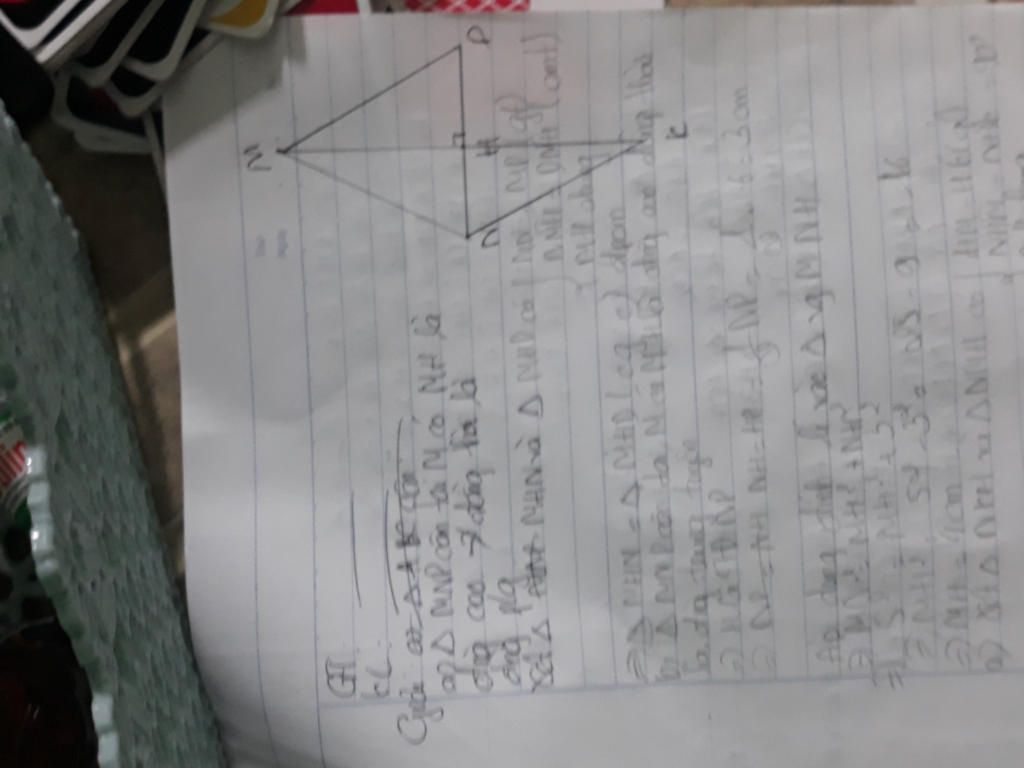 M
P
N
H
K
GT
KL
Giải:
a) Δ MNP cân tại M có MH là
đường cao → đồng thời là
đường p/g
Xét Δ MHN và Δ MHP có { MN = MP (gt)
NMH = PMH (cmt)
MH chung
=> Δ MHN = Δ MHP (c.g.c) đpcm
b) Δ MNP cân tại M có MH là đường cao đồng thời
là đg trung tuyến
=> H là TĐ NP
=> NH = HP = 1/2 NP = 1/2 . 6 = 3 cm
Áp dụng định lí vào Δ vg MNH
=> MN² = MH² + NH²
=> 5² = MH² + 3²
=> MH² = 5² - 3² = 25 - 9 = 16
=> MH = 4cm
c) Xét Δ NKH và Δ NMH có { HM = HK (gt)
NHM = NHK = 90°